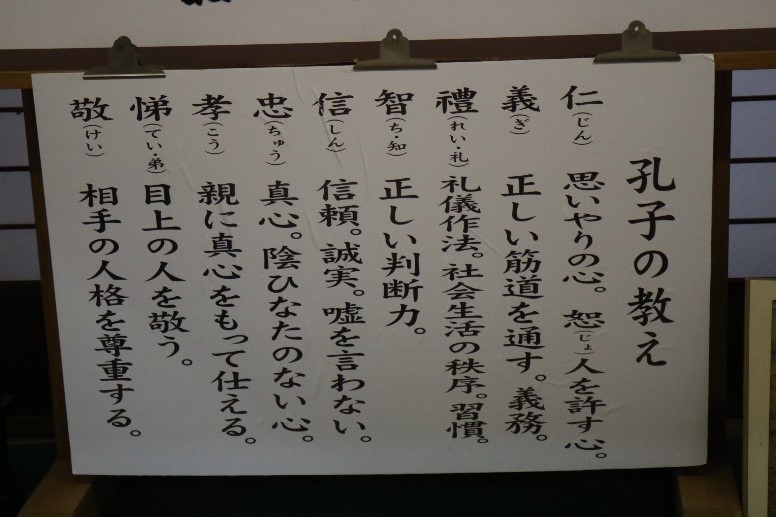 孔子の教え
仁(じん) 思いやりの心。恕(じょ)人を許す心。
義(ぎ) 正しい筋道を通す。義務。
禮(れい・礼) 礼儀作法。社会生活の秩序。習慣。
智(ち・知) 正しい判断力。
信(しん) 信頼。誠実。嘘を言わない。
忠(ちゅう) 真心。陰ひなたのない心。
孝(こう) 親に真心をもって仕える。
悌(てい・弟) 目上の人を敬う。
敬(けい) 相手の人格を尊重する。